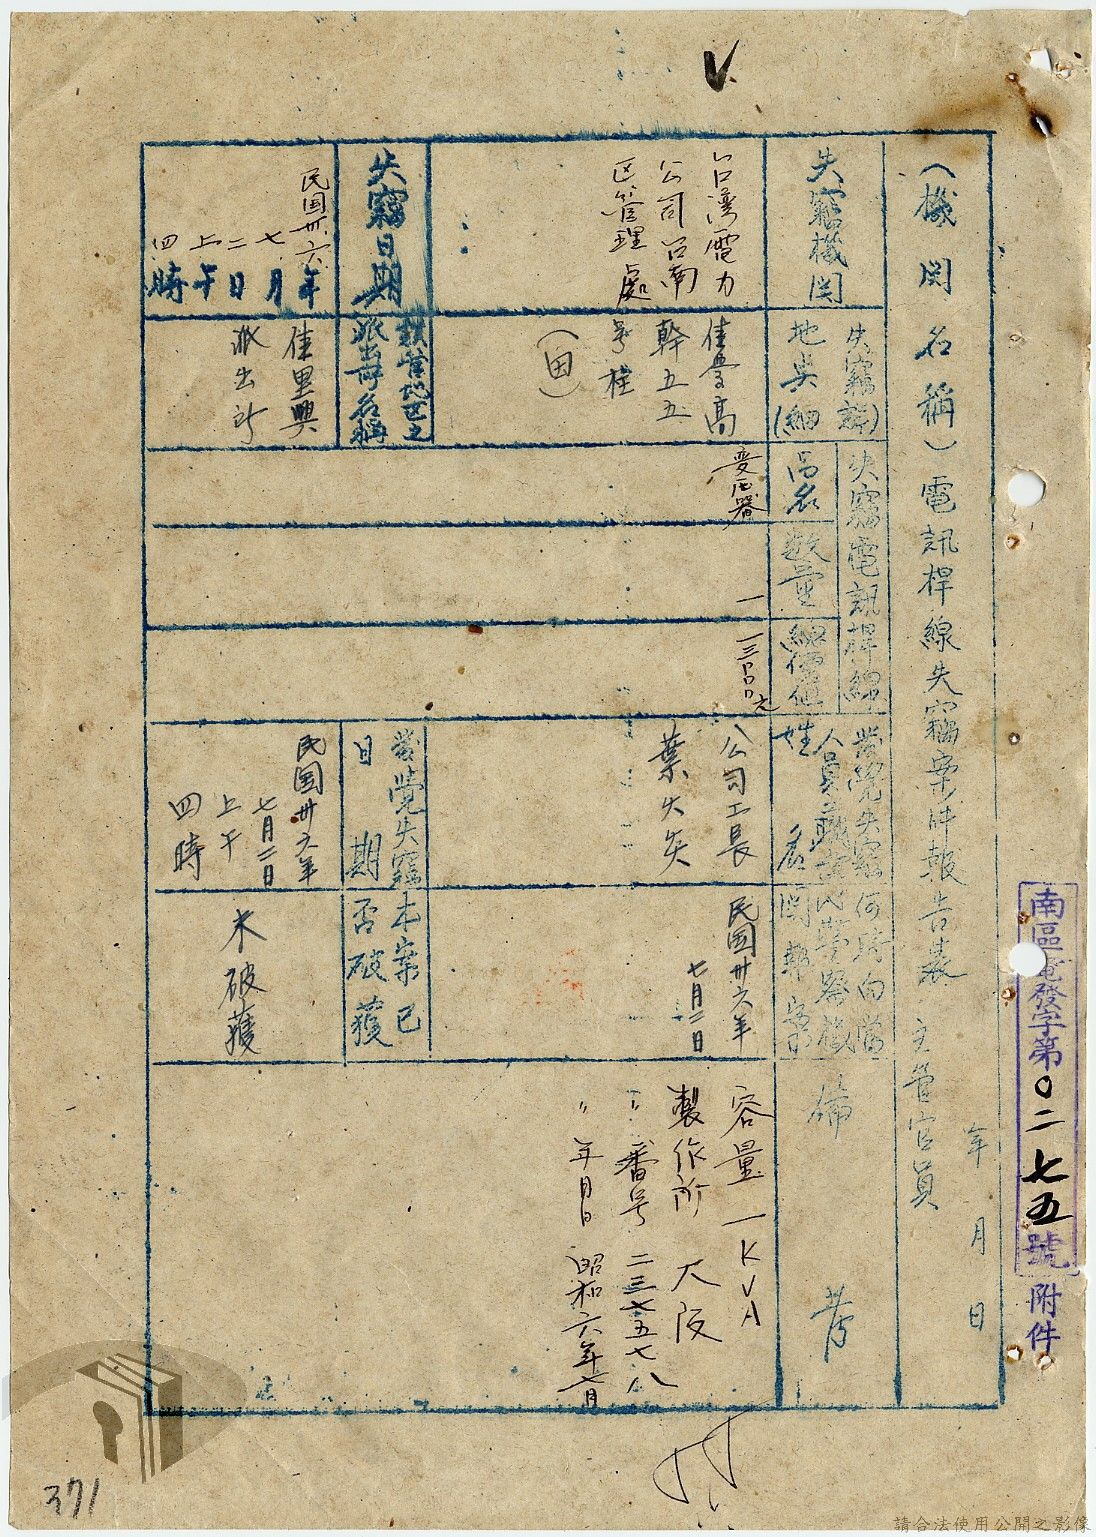 南區電發字第〇二七五號附件
年 月 日
(機関名稱)電訊桿線失竊案件報告表 主管官員
失竊機関
失竊詳
地点(細)
失竊電訊桿線
品名
數量
價值
發覺失竊
人員職
姓名
何時向當
関報案
備考
台湾電力
公司台南
区管理處
佳
高
幹五五
号桂
(田)
变圧器
一
公司工長
民国卅六年
七月二日
容量 一KVA
製作所 大阪
〃 番号 二三七五七八
〃 年月日 昭和六年七月
失竊日期
轄管地区之
派出所名稱
發覺失竊
日期
本案已
否破獲
民国卅六年
七月
二日
上午
四時
佳里興
派出所
民国卅六年
七月二日
上午
四時
未破獲
371
請合法使用公開之影像